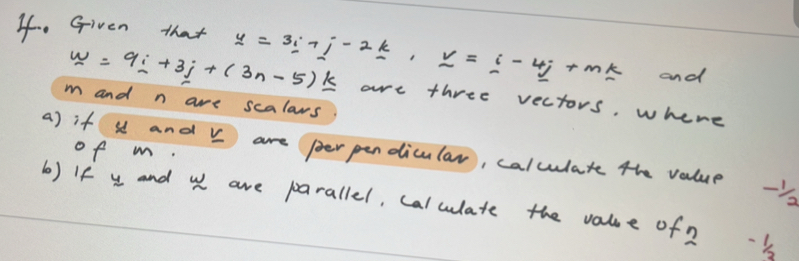 4. Given that u = 3i + j - 2k , v = i - 4j + mk and
w = 9i + 3j + (3n - 5)k are three vectors. where
m and n are scalars.
a) if u and v are perpendicular, calculate the value
of m.
-1/2
b) If u and w are parallel, calculate the value of n
-1/3